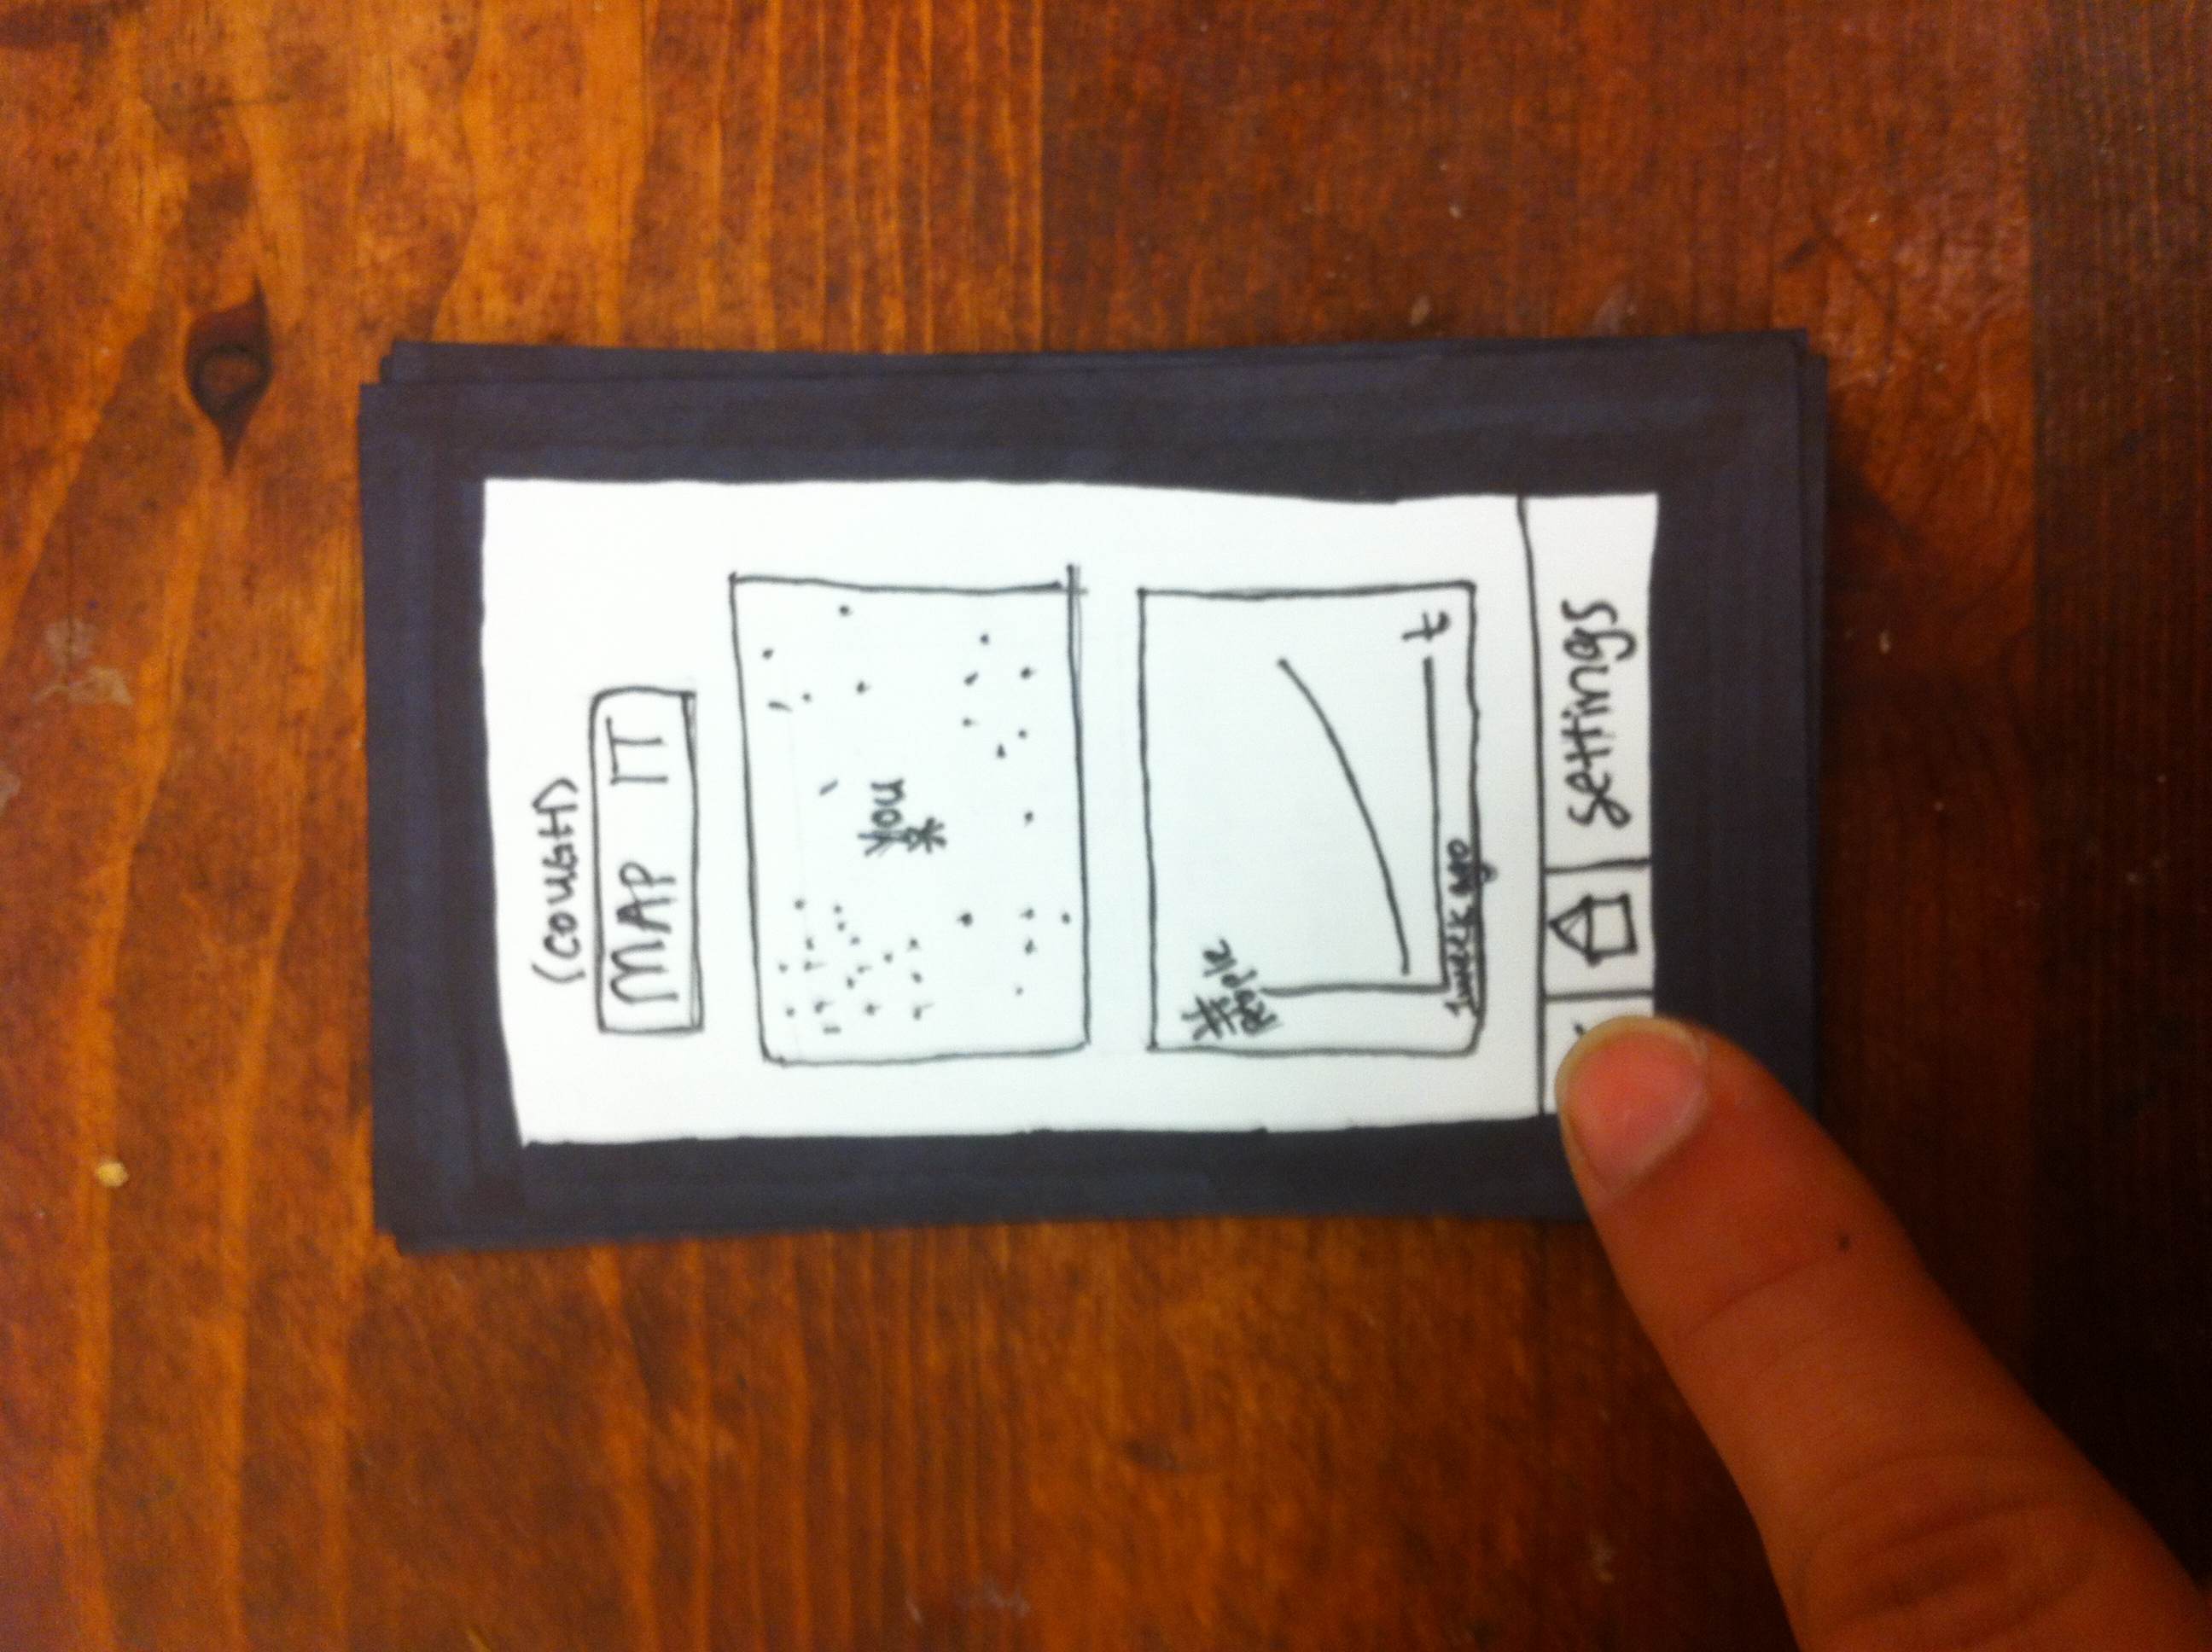 (COUGH)
MAP IT
You
#
People
t
1 week ago
settings